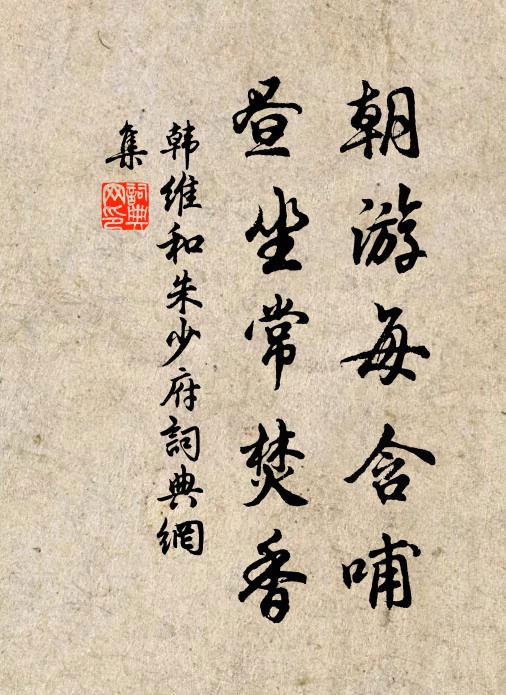 朝游每含哺
昼坐常焚香
韩维和朱少府詞典網
集
詞典
网印